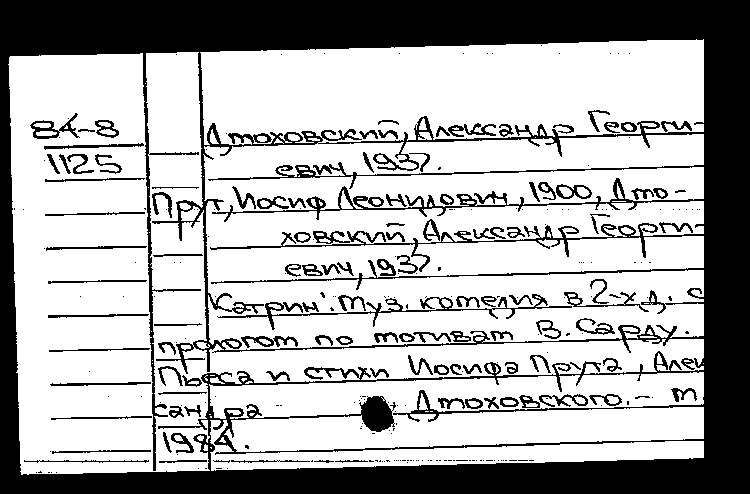 84-8 Дмоховский, Александр Георги-
1125 евич, 1937.
Прут, Иосиф Леонидович, 1900, Дмо-
ховский, Александр Георги-
евич, 1937.
Катрин: Муз. комедия в 2-х д. с
прологом по мотивам В. Сарду.
Пьеса и стихи Иосифа Прута, Алек
сандра Дмоховского. - М.
1984.